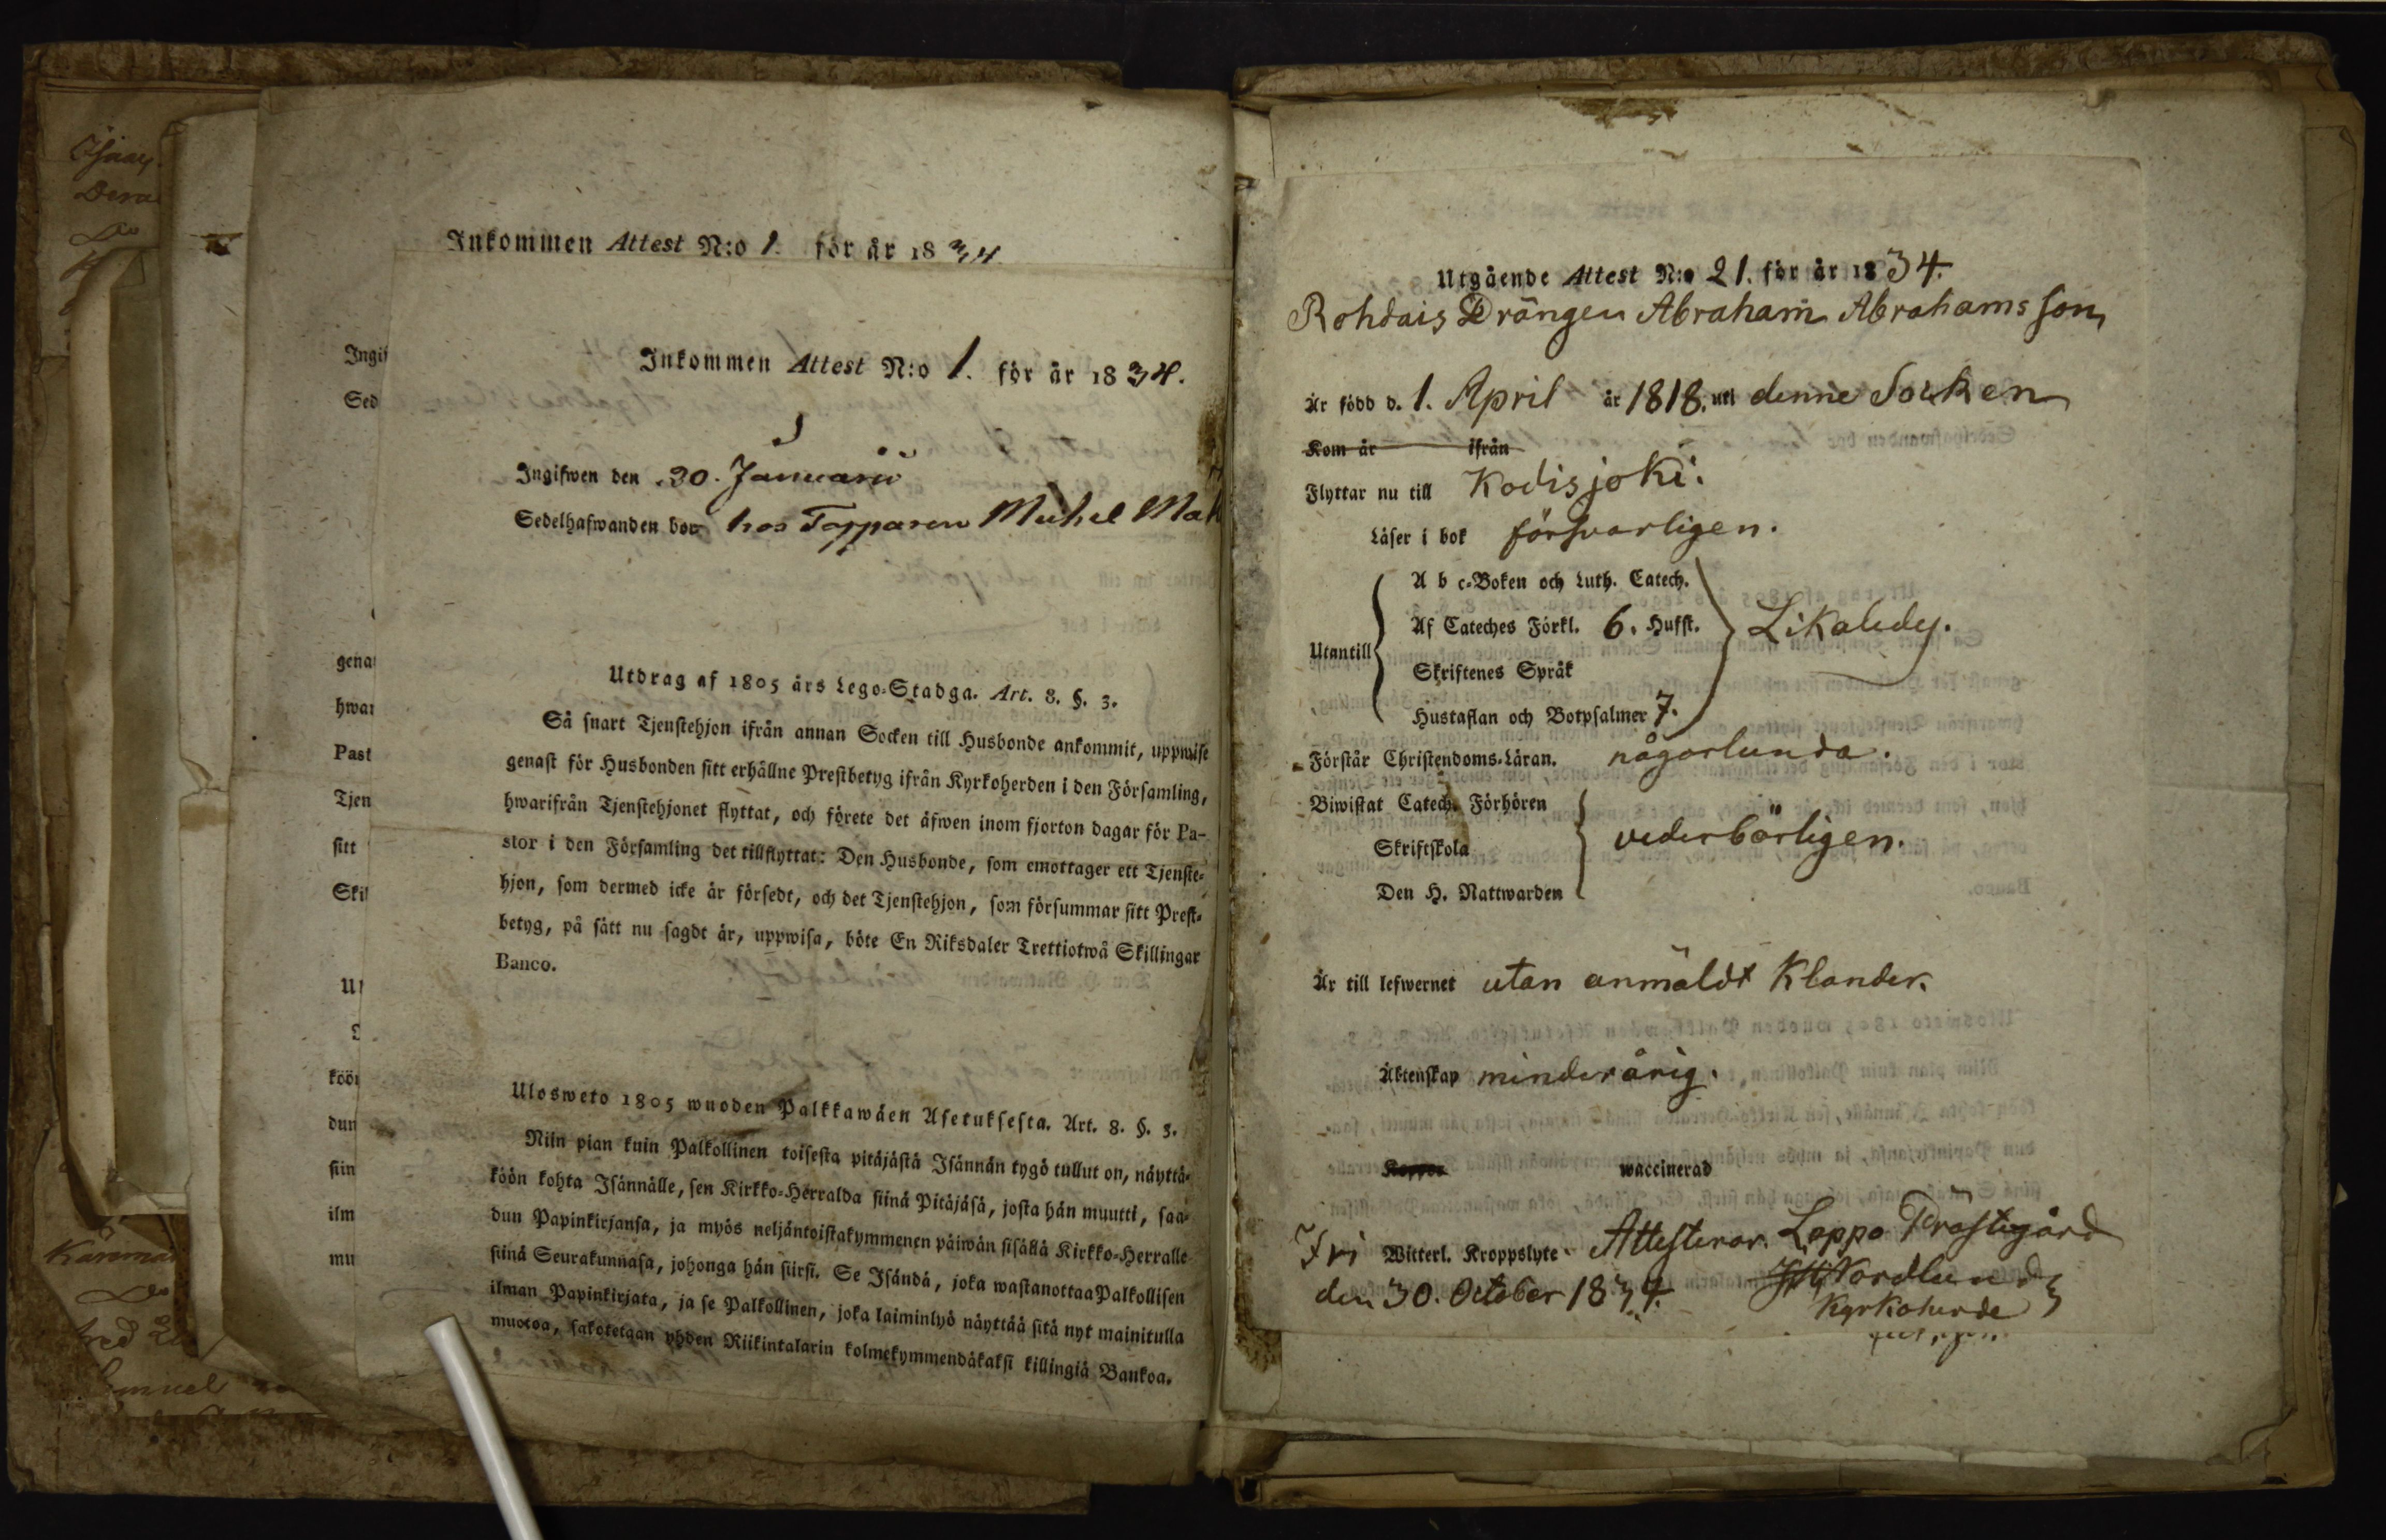 Inkommen Attest N:o 1. för år 1834
Inkommen Attest N:o 1. för år 1834.
Ingifwen den 30. Januarii
Sedelhafwanden bor hos Torpparen Michel Mat
Utdrag af 1805 års Lego-Stadga. Art. 8. §. 3.
Så snart Tjenstehjon ifrån annan Socken till Husbonde ankommit, uppwise
genast för Husbonden sitt erhållne Prestbetyg ifrån Kyrkoherden i den Församling,
hwarifrån Tjenstehjonet flyttat, och förete det äfwen inom fjorton dagar för Pa-
stor i den Församling det tillflyttat: Den Husbonde, som emottager ett Tjenste-
hjon, som dermed icke är försedt, och det Tjenstehjon, som försummar sitt Prest-
betyg, på sätt nu sagdt är, uppwisa, böte En Riksdaler Trettiotwå Skillingar
Banco.
Ulosweto 1805 wuoden Palkkawäen Asetuksesta. Art. 8. §. 3.
Niin pian kuin Palkollinen toisesta pitäjästä Isännän tygö tullut on, näyttä-
köön kohta Isännälle, sen Kirkko-Herralda siinä Pitäjäsä, josta hän muutti, saa-
dun Papinkirjansa, ja myös neljäntoistakymmenen päiwän sisällä Kirkko-Herralle
siinä Seurakunnasa, johonga hän siirsi. Se Isändä, joka wastanottaa Palkollisen
ilman Papinkirjata, ja se Palkollinen, joka laiminlyö näyttää sitä nyt mainitulla
muotoa, sakotetaan yhden Riikintalarin kolmekymmendäkaksi killingiä Bankoa.
Ingif
Sed
gena
hwar
Past
Tjen
sitt
Skil
köö
dun
siin
ilm
mu
Utgående Attest N:o 21. för år 1834.
Rohdais Drängen Abraham Abrahamsson
Är född d. 1. April år 1818. uti denne Socken
Kom år ifrån
Flyttar nu till Kodisjoki.
Läser i bok försvarligen.
A b c-Boken och Luth. Catech.
Af Cateches Förkl. 6. Hufst. Likaledes.
Utantill
Skriftenes Språk
Hustaflan och Botpsalmer 7.
Förstår Christendoms-Läran. någorlunda.
Biwistat Catech. Förhören
Skriftskola vederbörligen.
Den H. Nattwarden
Är till lefwernet utan anmäldt Klander.
Äktenskap minderårig.
Koppor waccinerad
Fri Witterl. Kroppslyte. Attesterar. Lappo Prästegård
den 30. October 1834. Nordlund
Kyrkoherde